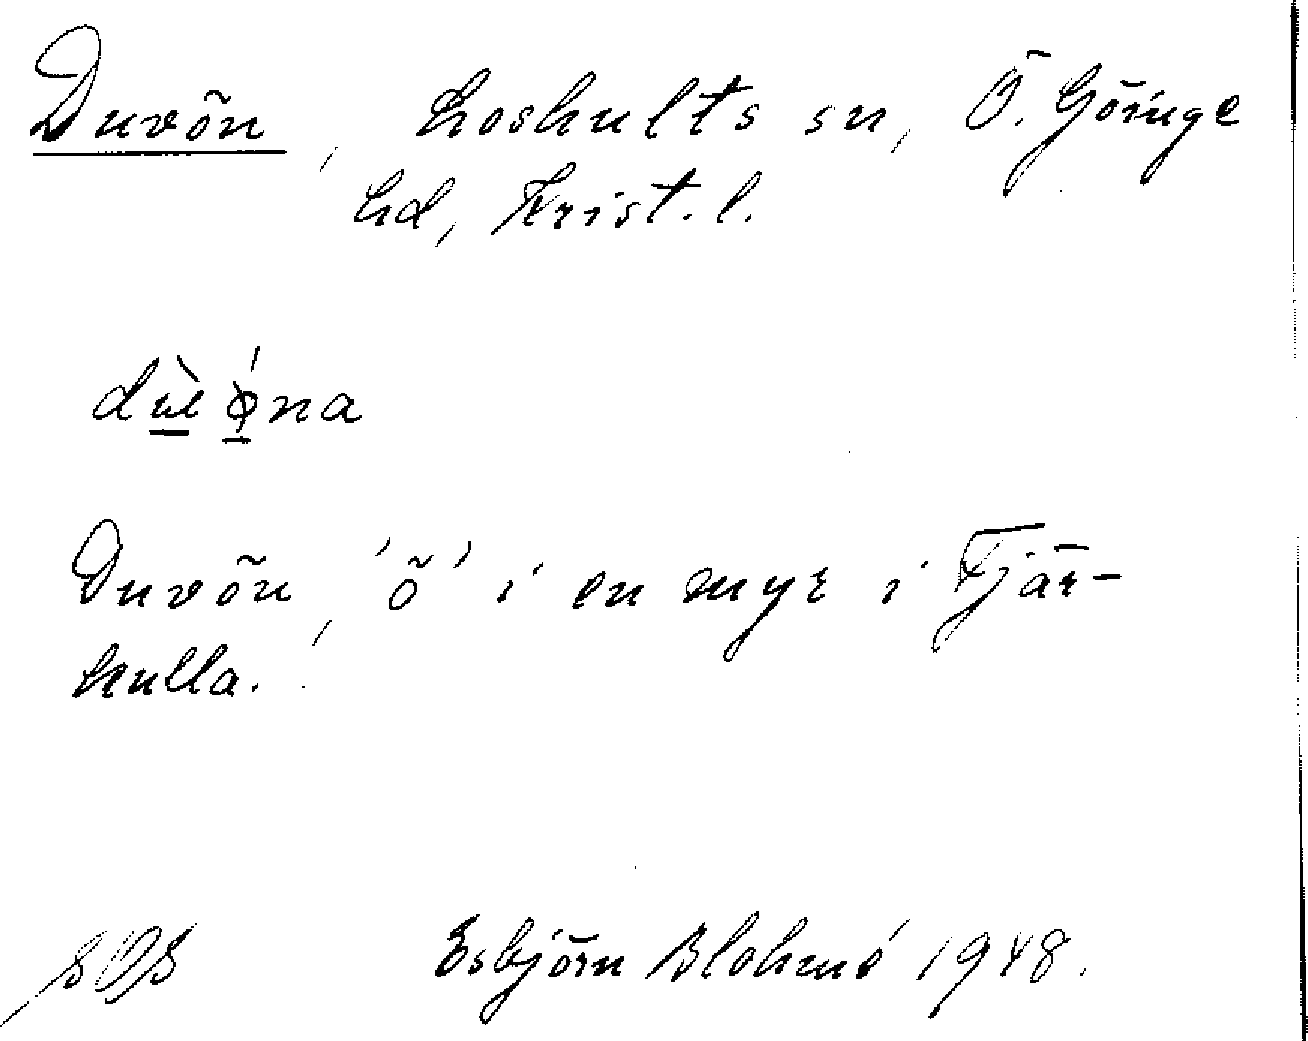 Duvön, Loshults sn, Ö. Göinge
hd, Krist. l.
Duvön, 'ö' i en myr i Tjär-
kulla.
Esbjörn Blohmé 1948.